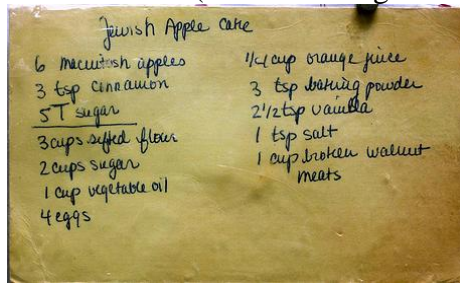 Jewish Apple Cake
6 macintosh apples
3 tsp cinnamon
5 T sugar
3 cups sifted flour
2 cups sugar
1 cup vegetable oil
4 eggs
1/4 cup orange juice
3 tsp baking powder
2 1/2 tsp vanilla
1 tsp salt
1 cup broken walnut
meats